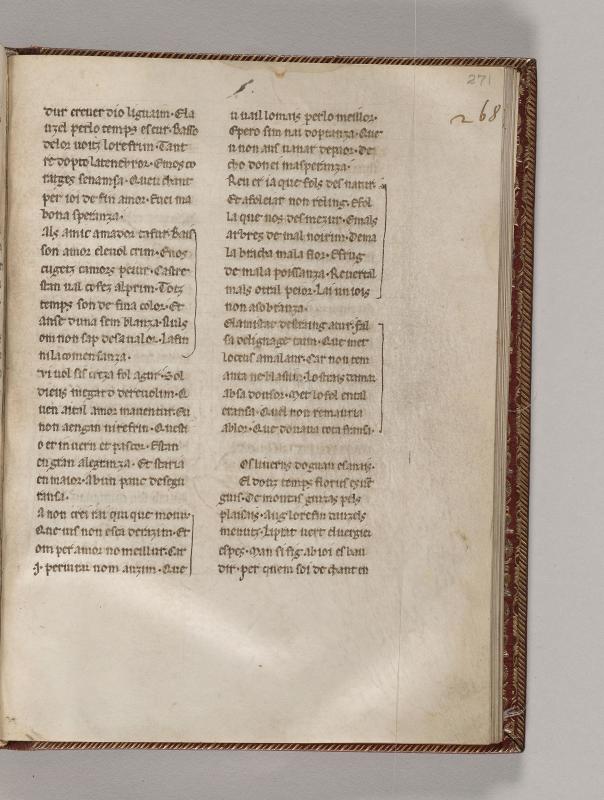 271
268
dur creuer dio liguaim · Ela
uzel perlo temps escur · Basso
delor uoutz lorefrim · Tant
re dopto latenebror · Emos co
ratges senansa · Queu chant
per ioi de fin amor · Enei ma
bona speranza ·
Als amic amador tafur · Bais
son amor eleuol crim · Enos
cugetz camors peiur · Castre
stan ual co fez alprim · Totz
temps son de fina color · Et
anse duna sem blanza · Nuls
om non sap de sa ualor · La fin
ni la comensanza ·
Qui uol sis creza fol agur · Sol
dieus me gard dereuolim · Q
uen aital amor mauentur · Eu
non aengan ni refrin · Questi
o et in uern et pascor · Estan
en gran alegranza · Et staria
en maior · Ab un pauc de segu
ransa ·
Ia non crei rai qui que mo iur ·
Que uis non esca derazim · Et
om per amor no meillur · Car
per uitat nom auzim · Que
u uail lo mais per lo meillor ·
Espero sim nai doptanza · Que
u non aus uanar depior · De
cho don ei masperanza ·
Reu er ia que fols des natur ·
Et afoleiar non reling · E fol
la que nos des mezur · E mals
arbres de mal noirim · De ma
la brancha mala flor · E frug
de mala poissanza · Reuertal
mals otral peior · Lai un iois
non asobranza ·
El amistat destraing atur · fal
sa del ignage caim · Que met
los seus a mal aur · Car non tem
anta ne blasm · Los trais damar
ab sa dousor · Met lo fol en tal
eransa · Quel non remauria
ab lor · Que donaua tota fransa ·
Os liuerns doguan es anais ·
El douz temps floris es uist
guis · De montas guizas pels
plaisais · Aug lo refin dauzels
menutz · Li prat uert el uergier
espes · Man si fig ab ioi es bau
dir · per quem soi de chant en